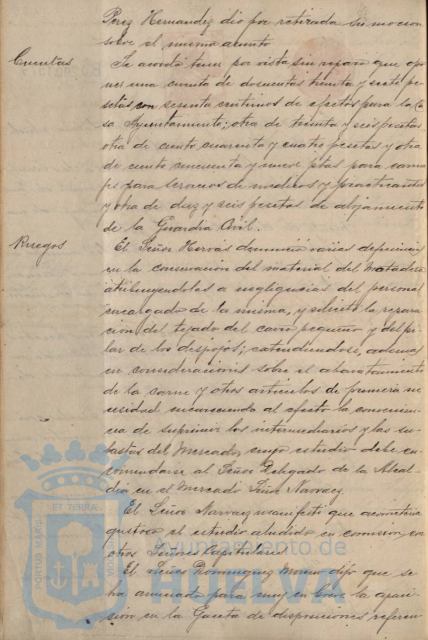 Perez Hernandez dió por retirada su mocion
sobre el mismo asunto
Cuentas
Se acordó tener por vista sin reparo que opo-
ner una cuenta de doscientas treinta y siete pe-
setas con sesenta centimos de efectos para la Ca-
sa Ayuntamiento; otra de treinta y seis pesetas
otra de ciento cuarenta y cuatro pesetas y otra
de ciento cincuenta y nueve ptas para carrua-
jes para servicios de medicos y practicantes
y otra de diez y seis pesetas de alojamiento
de la Guardia Civil.
Ruegos
El Señor Hervás denunció varias deficiencias
en la conservación del material del Matadero
atribuyendolas a negligencias del personal
encargado de la misma, y solicitó la repara-
cion del tejado del carro pequeño y del pi-
lar de los despojos; extendiendose, ademas
en consideraciones sobre el abaratamiento
de la carne y otros articulos de primera ne-
cesidad encareciendo al efecto la convenien-
cia de suprimir los intermediarios y las su-
bastas del Mercado, cuyo estudio debe en-
comendarse al Señor Delegado de la Alcal-
dia en el Mercado Señor Narvaez
El Señor Narvaez manifestó que acometeria
gustoso el estudio aludido en comision con
otros Señores Capitulares
El Señor Dominguez Moreno dijo que se
ha anunciado para muy en breve la apari-
sión en la Gaceta de disposiciones referen
PORTUS MARIS ET TERRAE
Ayuntamiento de
HUELVA